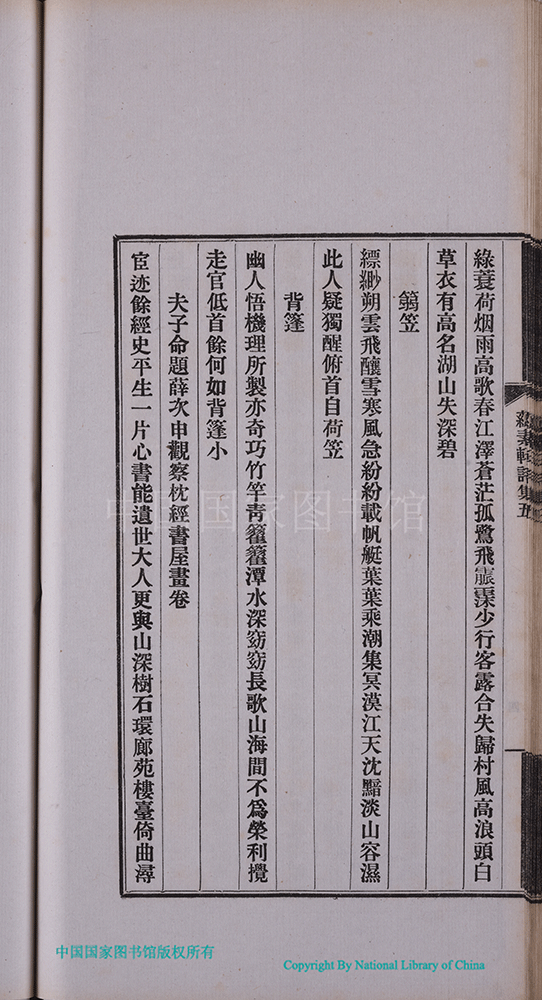 綠蓑荷烟雨高歌春江澤蒼茫孤鷺飛霡霂少行客露合失歸村風高浪頭白
草衣有高名湖山失深碧
篛笠
縹緲朔雲飛釀雪寒風急紛紛載帆艇葉葉乘潮集冥漠江天沈黯淡山容濕
此人疑獨醒俯首自荷笠
背篷
幽人悟機理所製亦奇巧竹竿青籊籊潭水深窈窈長歌山海間不爲榮利攪
走官低首餘何如背篷小
夫子命題薛次申觀察枕經書屋畫卷
宦迹餘經史平生一片心書能遺世大人更與山深樹石環廊苑樓臺倚曲潯
軒詩集五
中国国家图书馆
中国国家图书馆版权所有
Copyright By National Library of China